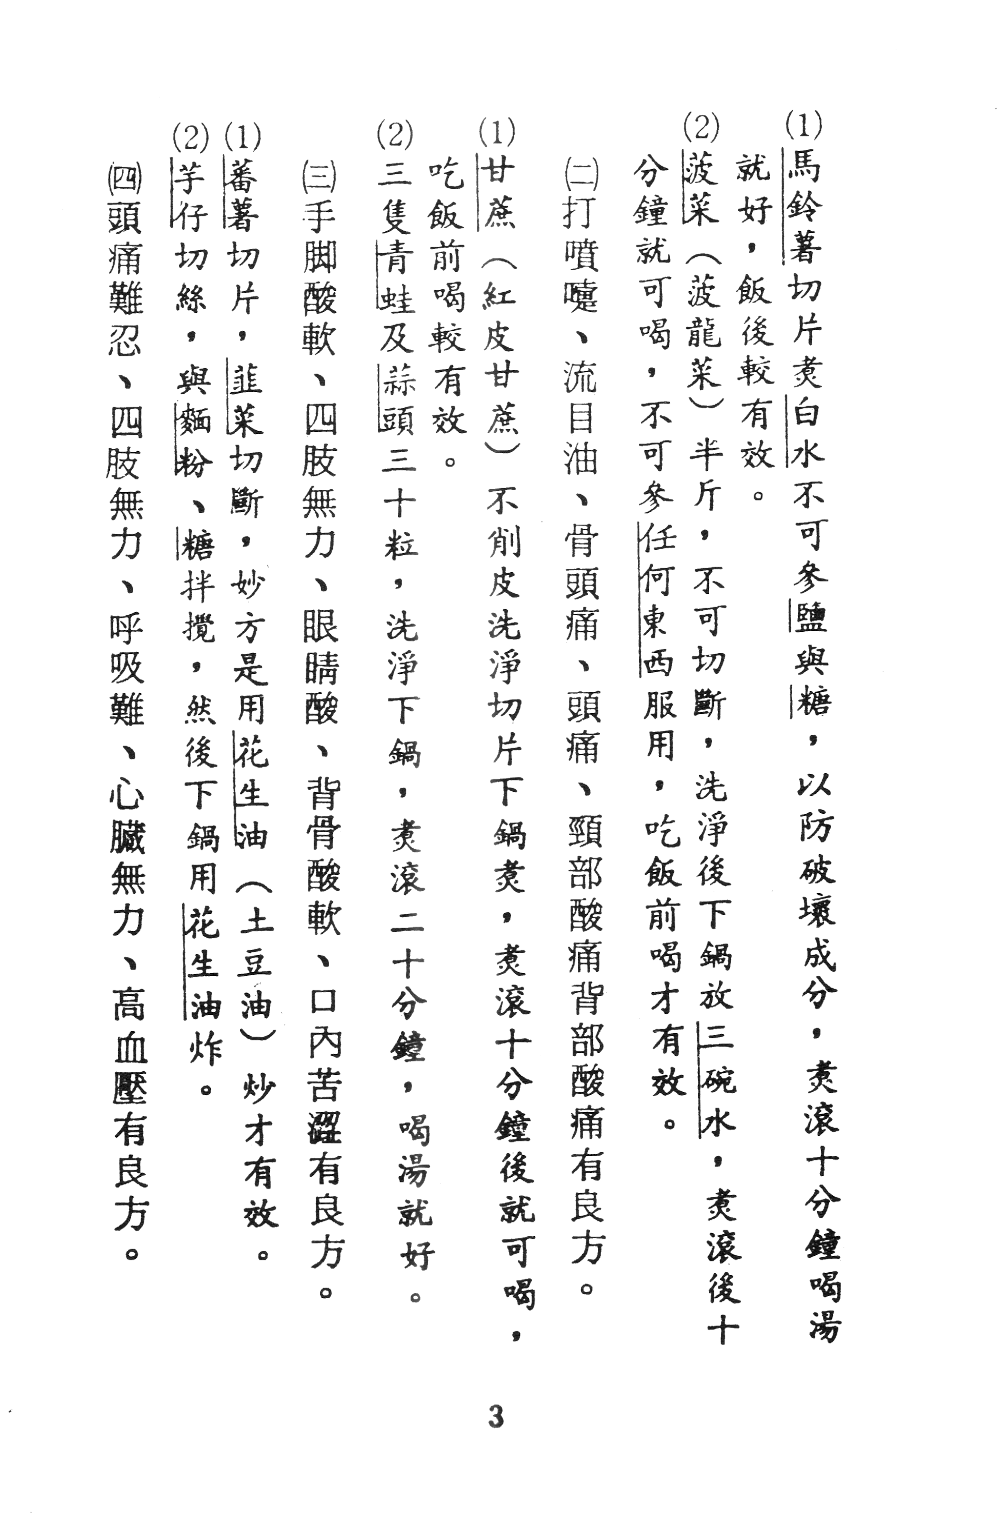 (1)馬鈴薯切片煑白水不可參鹽與糖，以防破壞成分，煑滾十分鐘喝湯
就好，飯後較有效。
(2)菠菜（菠龍菜）半斤，不可切斷，洗淨後下鍋放三碗水，煑滾後十
分鐘就可喝，不可參任何東西服用，吃飯前喝才有效。
㈡打噴嚏、流目油、骨頭痛、頭痛、頸部酸痛背部酸痛有良方。
(1)甘蔗（紅皮甘蔗）不削皮洗淨切片下鍋煑，煑滾十分鐘後就可喝，
吃飯前喝較有效。
(2)三隻青蛙及蒜頭三十粒，洗淨下鍋，煑滾二十分鐘，喝湯就好。
㈢手脚酸軟、四肢無力、眼睛酸、背骨酸軟、口內苦澀有良方。
(1)蕃薯切片，韮菜切斷，妙方是用花生油（土豆油）炒才有效。
(2)芋仔切絲，與麵粉、糖拌攪，然後下鍋用花生油炸。
㈣頭痛難忍、四肢無力、呼吸難、心臟無力、高血壓有良方。
3